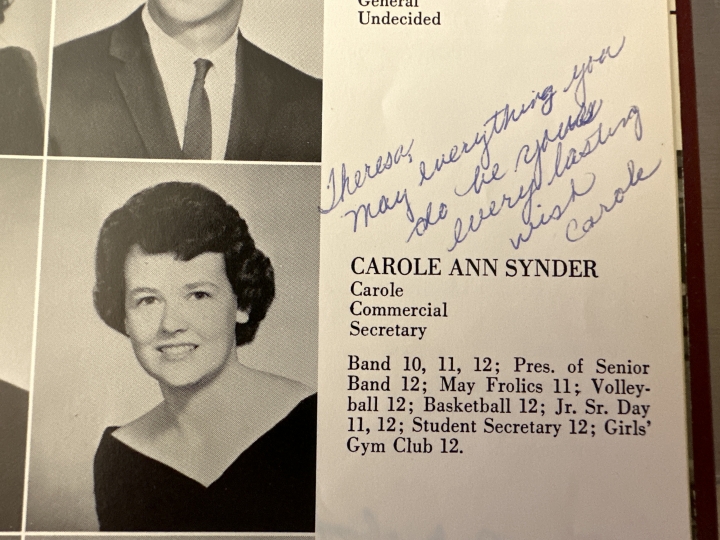 General
Undecided
Theresa,
may everything you
do be yours
every lasting
wish
Carole
CAROLE ANN SYNDER
Carole
Commercial
Secretary
Band 10, 11, 12; Pres. of Senior
Band 12; May Frolics 11; Volley-
ball 12; Basketball 12; Jr. Sr. Day
11, 12; Student Secretary 12; Girls'
Gym Club 12.